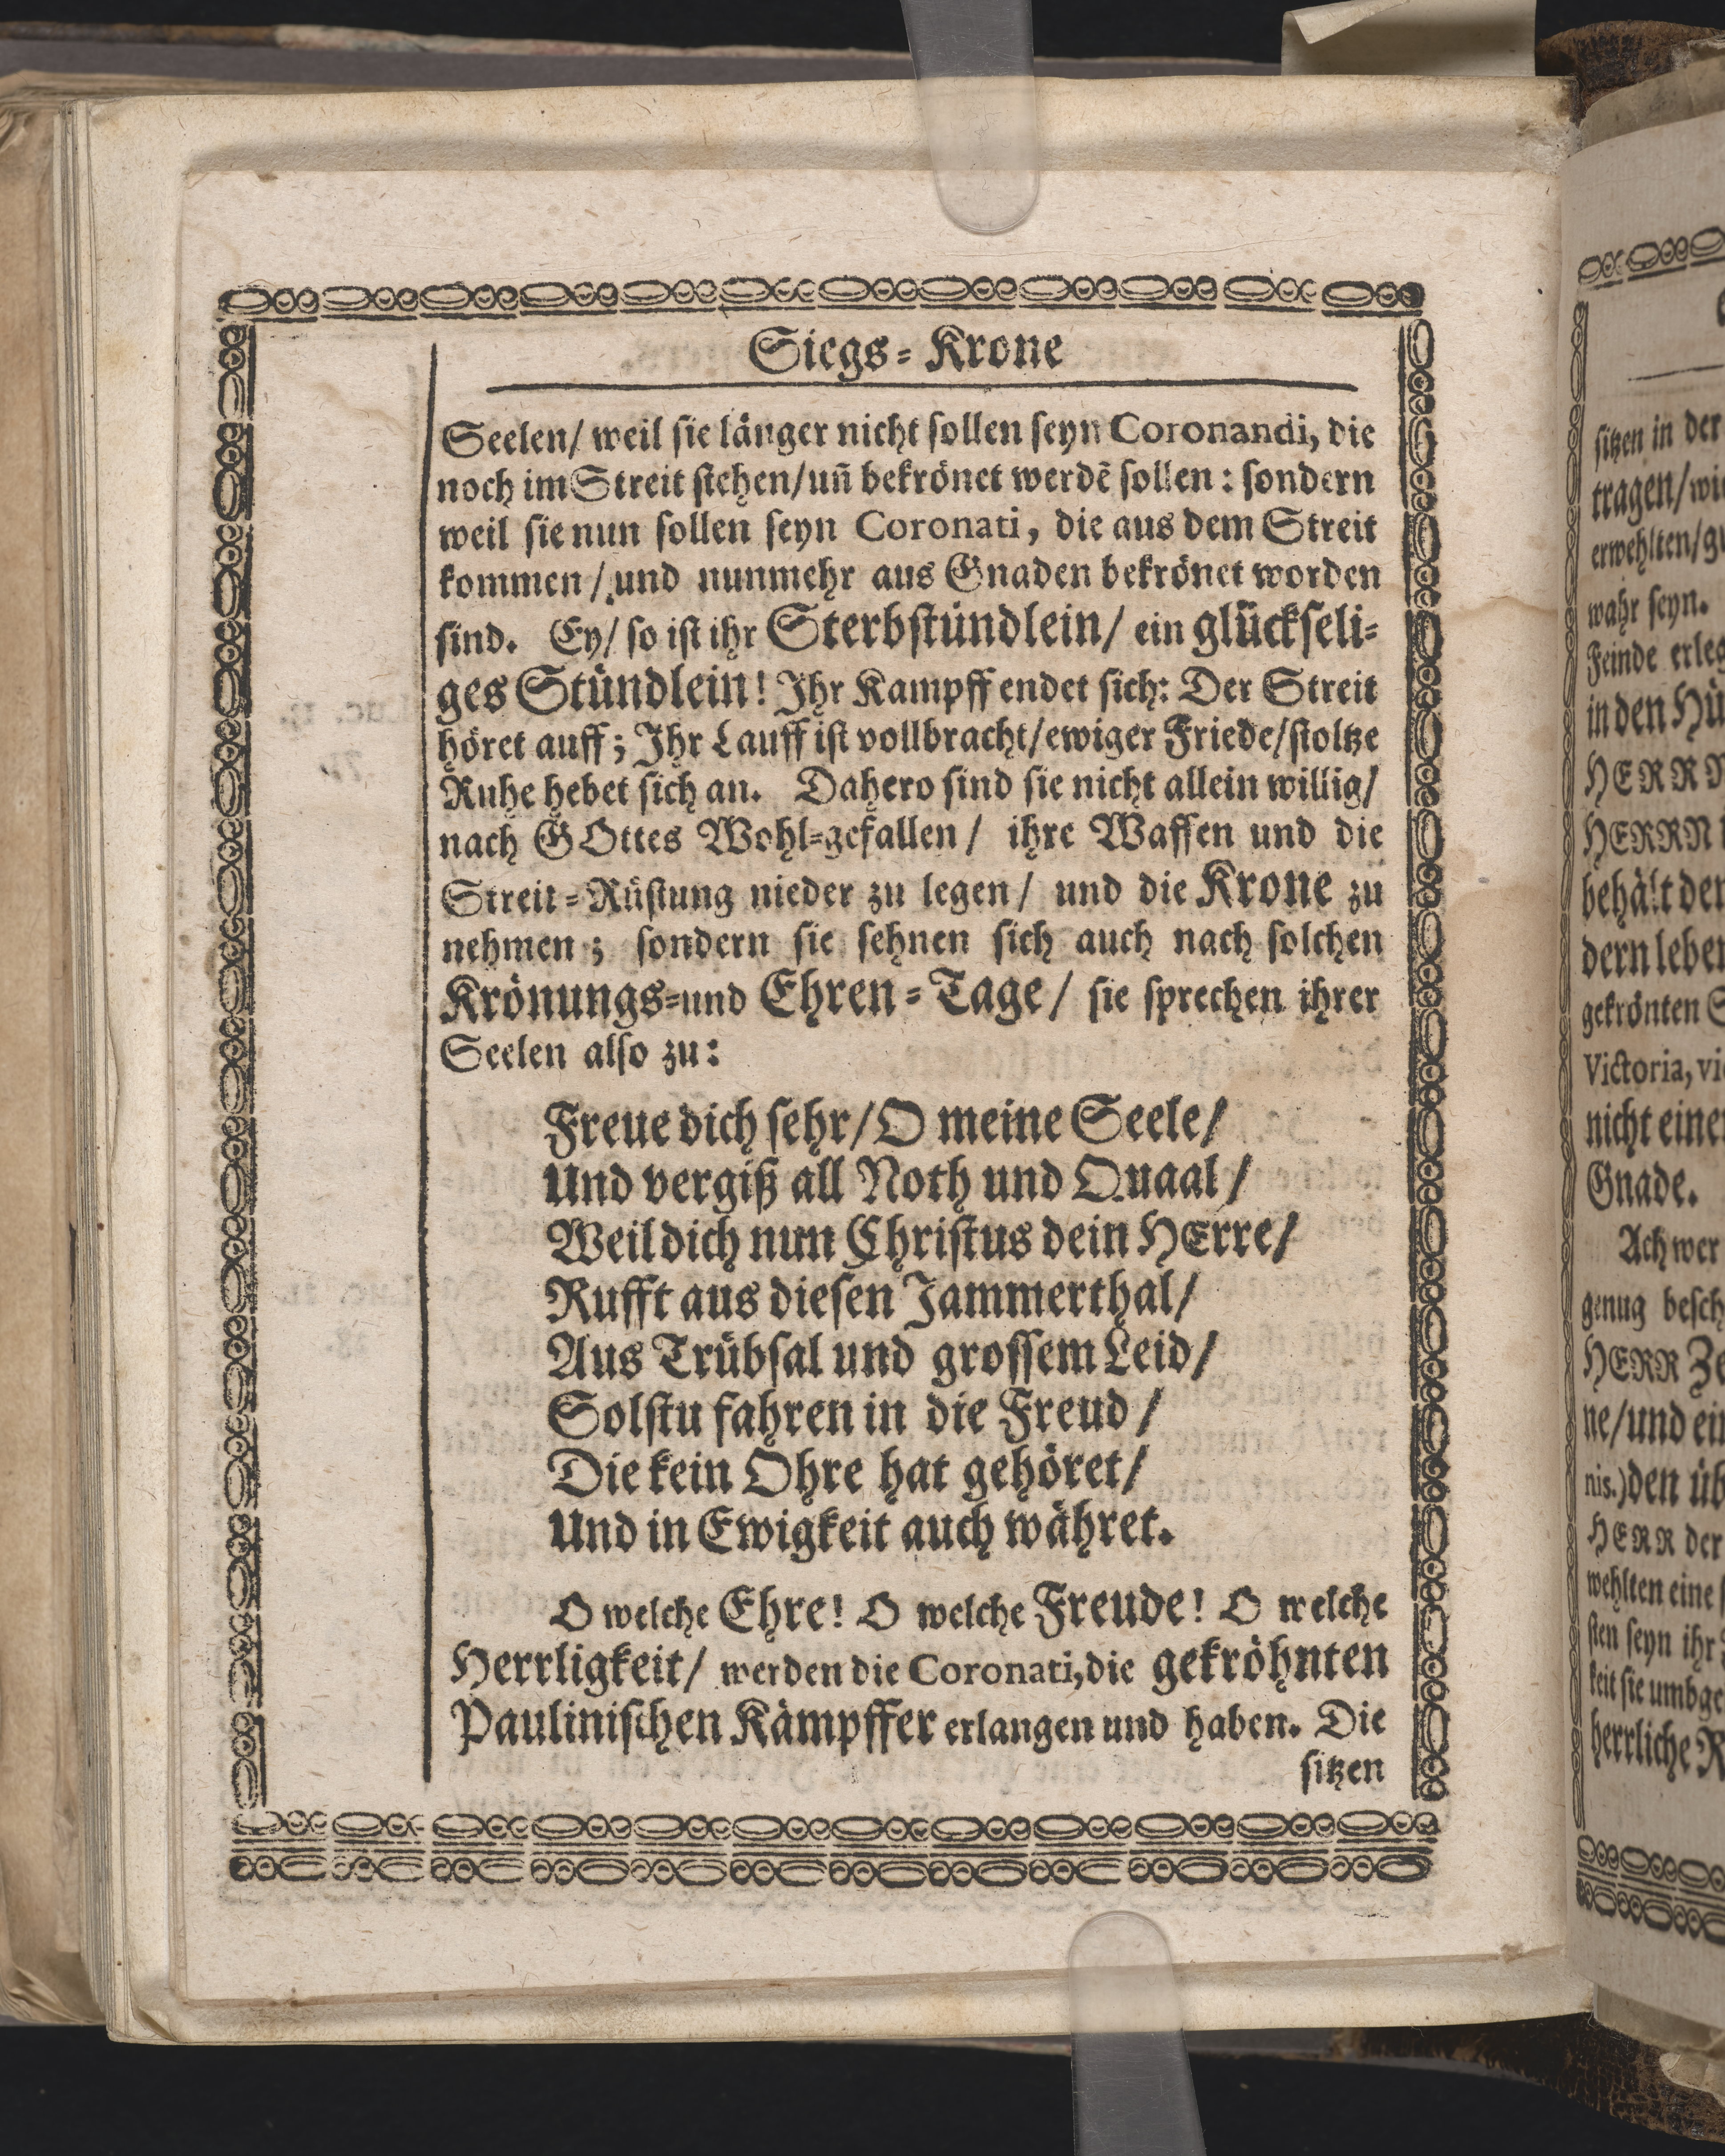 Siegs-Krone
Seelen/ weil sie länger nicht sollen seyn Coronandi, die
noch im Streit stehen/ uñ bekrönet werdẽ sollen: sondern
weil sie nun sollen seyn Coronati, die aus dem Streit
kommen/ und nunmehr aus Gnaden bekrönet worden
sind. Ey/ so ist ihr Sterbstündlein/ ein glückseli-
ges Stündlein! Ihr Kampff endet sich: Der Streit
höret auff; Ihr Lauff ist vollbracht/ ewiger Friede/ stoltze
Ruhe hebet sich an. Dahero sind sie nicht allein willig/
nach GOttes Wohl-gefallen/ ihre Waffen und die
Streit-Rüstung nieder zu legen/ und die Krone zu
nehmen; sondern sie sehnen sich auch nach solchen
Krönungs-und Ehren-Tage/ sie sprechen ihrer
Seelen also zu:
Freue dich sehr/ O meine Seele/
Und vergiß all Noth und Quaal/
Weil dich nun Christus dein HErre/
Rufft aus diesen Jammerthal/
Aus Trübsal und grossem Leid/
Solstu fahren in die Freud/
Die kein Ohre hat gehöret/
Und in Ewigkeit auch währet.
O welche Ehre! O welche Freude! O welche
Herrligkeit/ werden die Coronati, die gekröhnten
Paulinischen Kämpffer erlangen und haben. Die
sitzen
sitzen in der
tragen/
erwehlten/
wahr seyn.
Feinde
in den
HERR
HERRN
behält der
dern
gekrönten
Victoria,
nicht
Gnade.
Ach wer
genug
HERR
ne/ und
nis.) den
HERR der
wehlten eine
sten seyn ihr
keit sie
herrliche